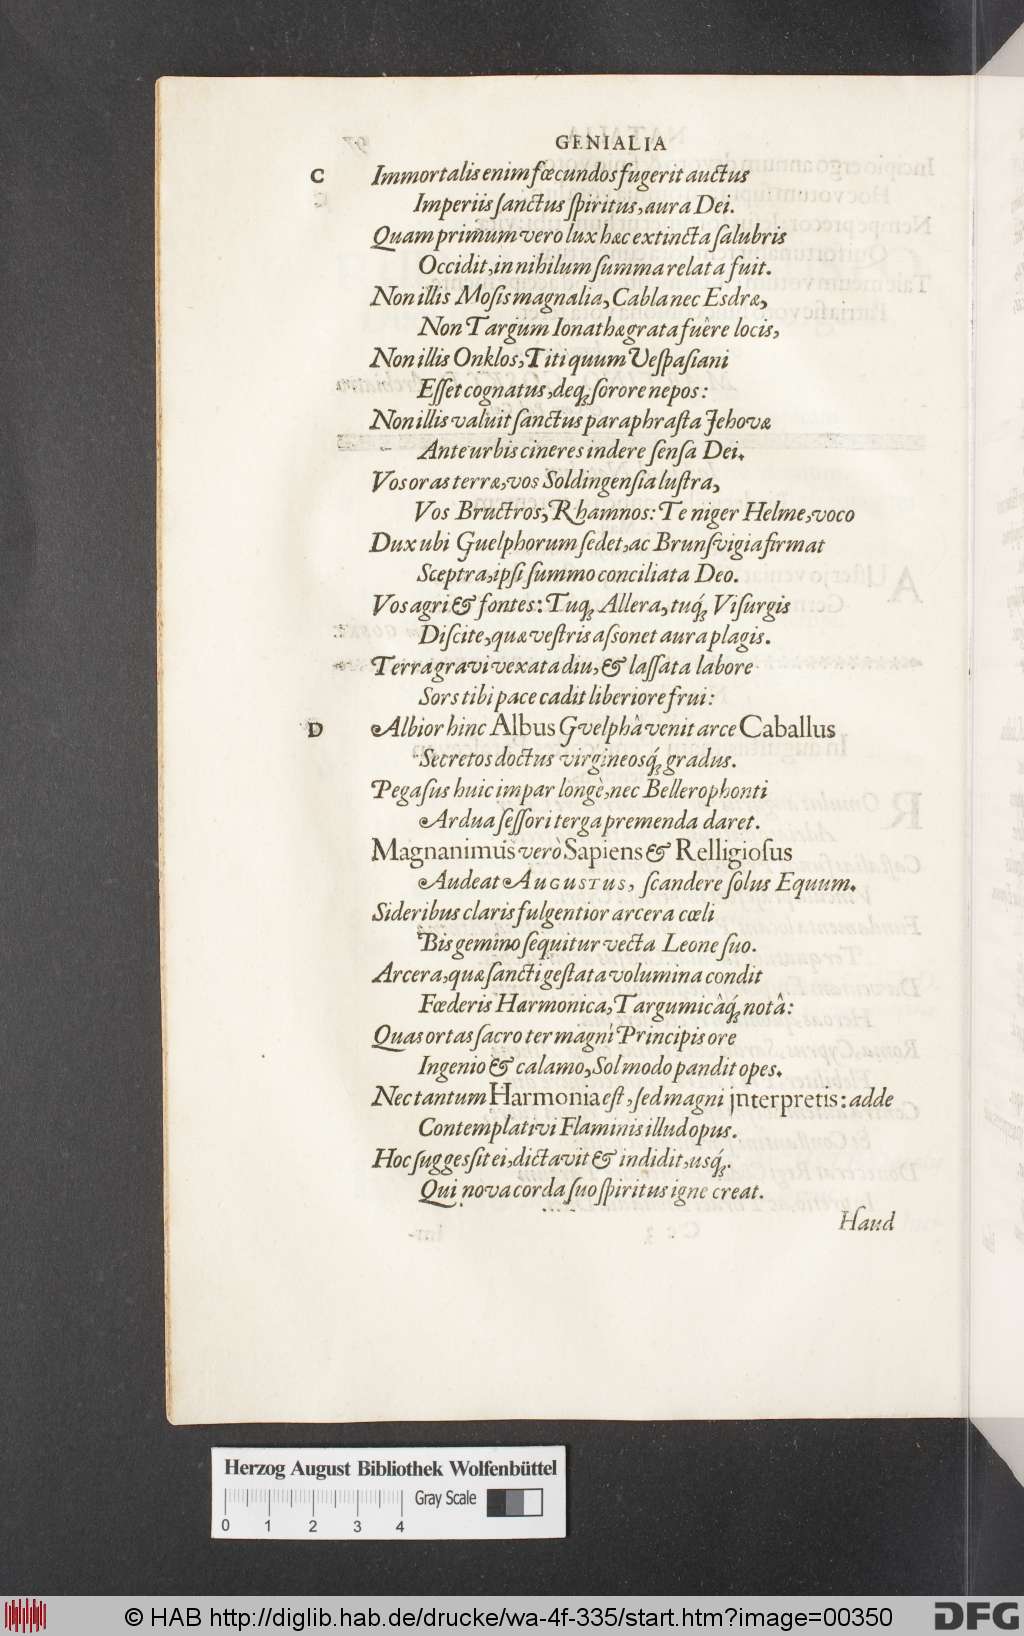 GENIALIA
C Immortalis enim fœcundos fugerit auctus
Imperiis ſanctus ſpiritus, aura Dei.
Quam primùm vero lux hæc extincta ſalubris
Occidit, in nihilum ſumma relata fuit.
Non illis Moſis magnalia, Cabla nec Esdræ,
Non Targùm Ionathæ grata fuêre locis,
Non illis Onklos, Titi quum Veſpaſiani
Eſſet cognatus, deq́; ſorore nepos:
Non illis valuit ſanctus paraphraſta Jehovæ
Ante urbis cineres indere ſenſa Dei.
Vos oras terræ, vos Soldingenſia luſtra,
Vos Bructros, Rhamnos: Te niger Helme, voco
Dux ubi Guelphorum ſedet, ac Brunſvigia firmat
Sceptra, ipſi ſummo conciliata Deo.
Vos agri & fontes: Tuq́; Allera, tuq́; Viſurgis
Diſcite, quæ veſtris aſſonet aura plagis.
Terra gravi vexata diu, & laſſata labore
Sors tibi pace cadit liberiore frui:
D Albior hinc Albus Gvelphâ venit arce Caballus
Secretos doctus virgineosq́; gradus.
Pegaſus huic impar longè, nec Bellerophonti
Ardua ſeſſori terga premenda daret.
Magnanimus verò Sapiens & Relligioſus
Audeat AUGUSTUS, ſcandere ſolus Equum.
Sideribus claris fulgentior arcera cœli
Bis gemino ſequitur vecta Leone ſuo.
Arcera, quæ ſancti geſtata volumina condit
Fœderis Harmonica, Targumicâq́; notâ:
Quas ortas ſacro ter magni Principis ore
Ingenio & calamo, Sol modo pandit opes.
Nec tantum Harmonia eſt, ſed magni jnterpretis: adde
Contemplativi Flaminis illud opus.
Hoc ſuggeſsit ei, dictavit & indidit, usq́;
Qui nova corda ſuo ſpiritus igne creat.
Haud
Herzog August Bibliothek Wolfenbüttel
Gray Scale
0 1 2 3 4
© HAB http://diglib.hab.de/drucke/wa-4f-335/start.htm?image=00350
DFG